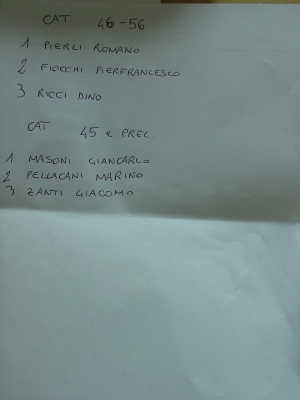 CAT. 46-56
1 PIERLI ROMANO
2 FIOCCHI PIERFRANCESCO
3 RICCI DINO
CAT 45 e PREC.
1 MASONI GIANCARLO
2 PELLACANI MARINO
3 ZANTI GIACOMO